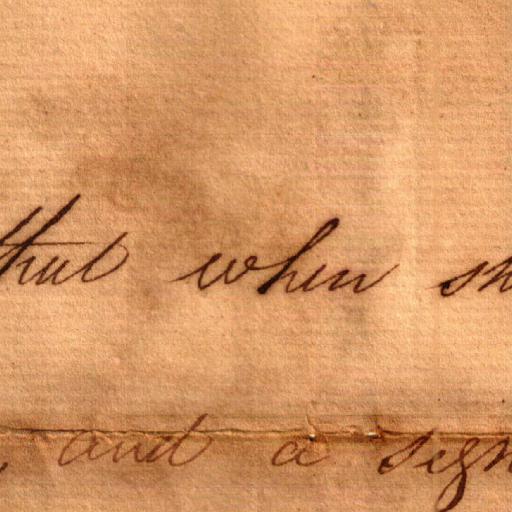 that when sh
, and a sign